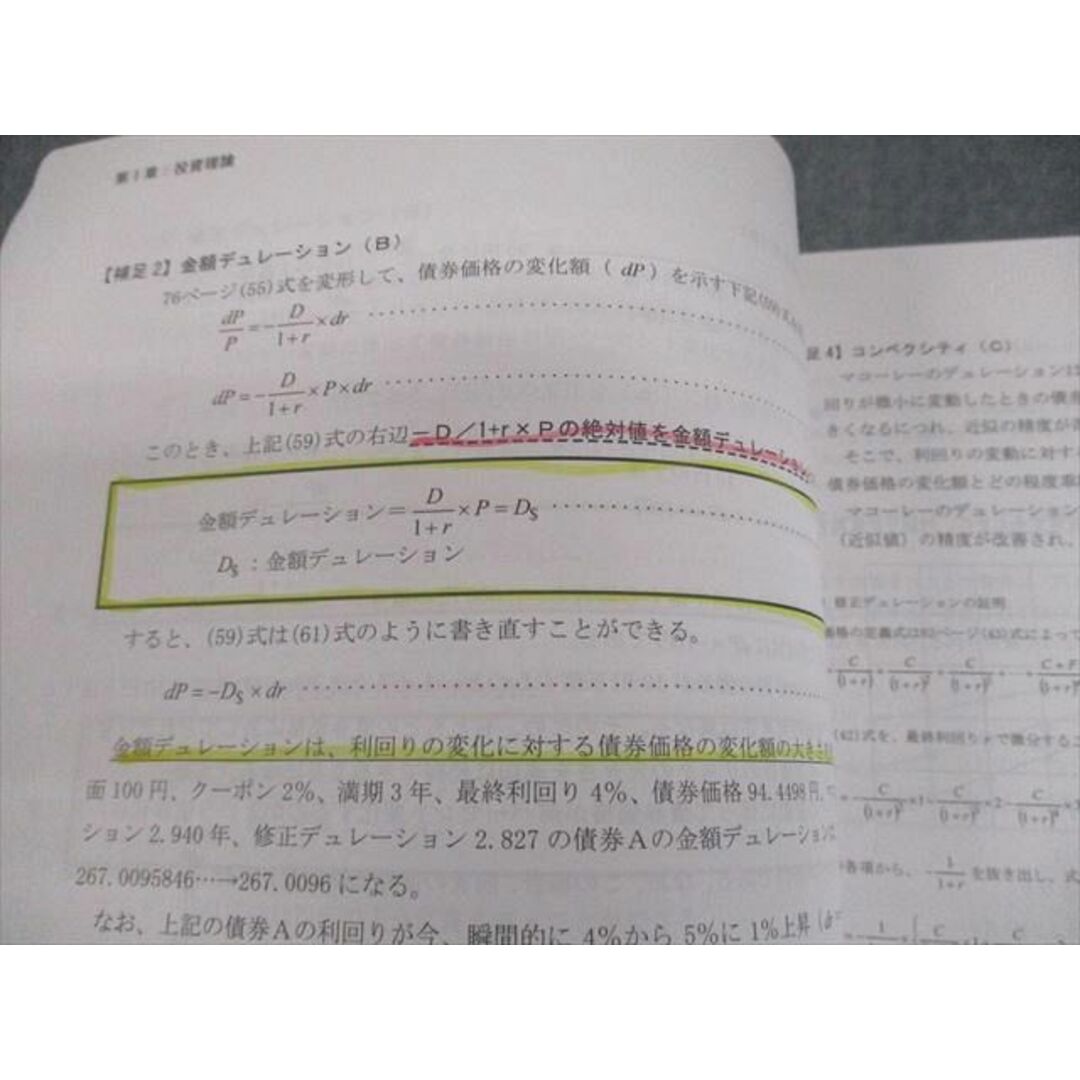 第1章：投資理論
【補足2】金額デュレーション（B）
76ページ(55)式を変形して、債券価格の変化額（ dP ）を示す下記(59)式
dP/P=-D/1+r×dr
dP=-D/1+r×P×dr
このとき、上記(59)式の右辺－D／1+r×Pの絶対値を金額デュレーション
金額デュレーション=D/1+r×P=D$
D$：金額デュレーション
すると、(59)式は(61)式のように書き直すことができる。
dP=-D$×dr
金額デュレーションは、利回りの変化に対する債券価格の変化額の大きさ
面100円、クーポン2%、満期3年、最終利回り4%、債券価格94.4498円、
ション2.940年、修正デュレーション2.827の債券Aの金額デュレーション
267.0095846…→267.0096になる。
なお、上記の債券Aの利回りが今、瞬間的に4%から5%に1%上昇（d
足4】コンベクシティ（C）
マコーレーのデュレーションは
回りが微小に変動したときの債券
きくなるにつれ、近似の精度が
そこで、利回りの変動に対す
債券価格の変化額とどの程度
マコーレーのデュレーション
（近似値）の精度が改善され、
修正デュレーションの証明
C/(1+r)+C/(1+r)²+C/(1+r)³+ +C+F/(1+r)
(42)式を、最終利回りrで微分する
=-C/(1+r)²×1-C/(1+r)³×2-C/(1+r)⁴×
各項から、-1/1+rを抜き出し、式